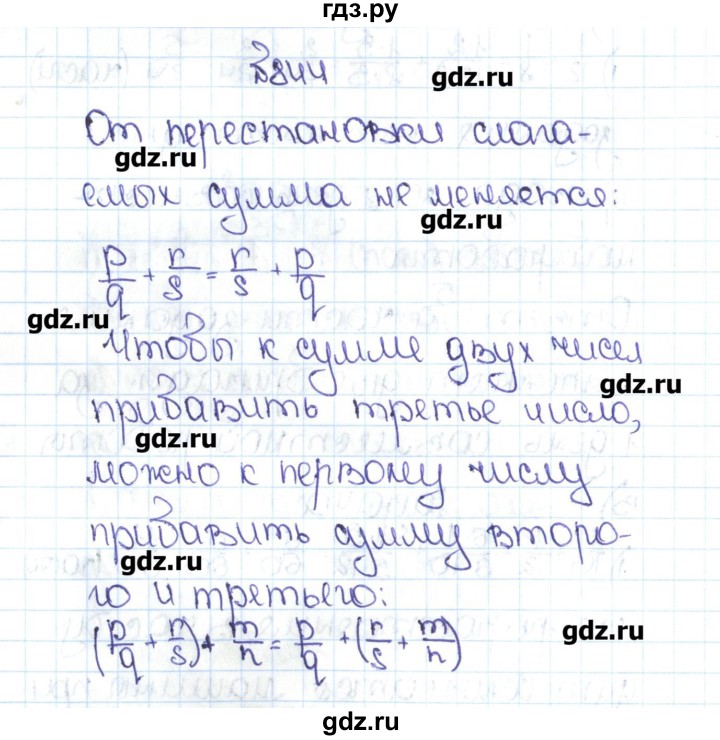 гдз.ру
№844
gdz.ru
От перестановки слага-
gdz.ru
емых сумма не меняется:
gdz.ru
p/q + r/s = r/s + p/q
gdz.ru
Чтобы к сумме двух чисел
gdz.ru
прибавить третье число,
gdz.ru
можно к первому числу
прибавить сумму второ-
gdz.ru
го и третьего:
(p/q + r/s) + m/n = p/q + (r/s + m/n)
gdz.ru
gdz.ru